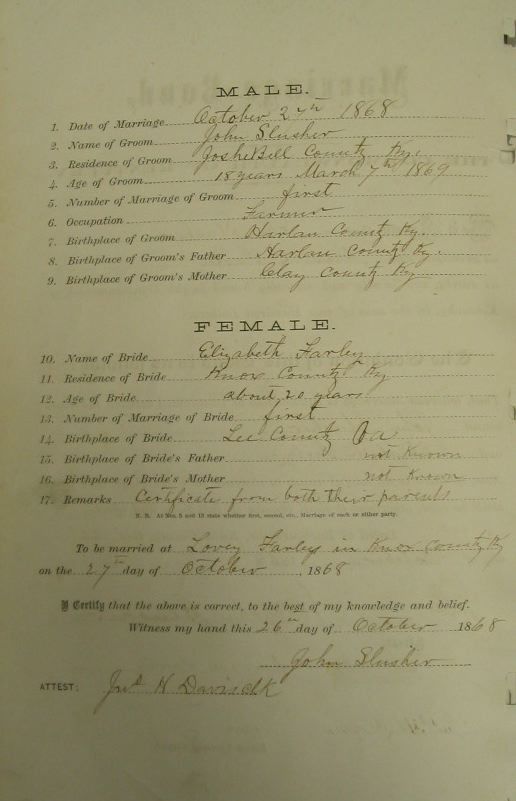 MALE.
1. Date of Marriage October 27th 1868
2. Name of Groom John Slusher
3. Residence of Groom JosheBell County Ky.
4. Age of Groom 18 years March 7th 1869
5. Number of Marriage of Groom first
6. Occupation Farmer
7. Birthplace of Groom Harlan County Ky.
8. Birthplace of Groom's Father Harlan County Ky.
9. Birthplace of Groom's Mother Clay County Ky
FEMALE.
10. Name of Bride Elizabeth Farley
11. Residence of Bride Knox County Ky
12. Age of Bride about 20 years
13. Number of Marriage of Bride first
14. Birthplace of Bride Lee County Va
15. Birthplace of Bride's Father not Known
16. Birthplace of Bride's Mother not Known
17. Remarks Certificate from both their parents
N. B. At Nos. 5 and 13 state whether first, second, etc., Marriage of each or either party.
To be married at Lovey Farleys in Knox County Ky
on the 27th day of October, 1868
I Certify that the above is correct, to the best of my knowledge and belief.
Witness my hand this 26th day of October 1868
John Slusher
ATTEST: Jno H Davis clk